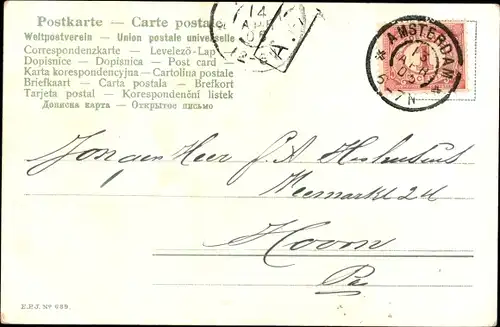 Postkarte — Carte postale
Weltpostverein — Union postale universelle
Correspondenzkarte — Levelező-Lap
Dopisnice — Dopisnica — Post card —
Karta korespondencyjna — Cartolina postale
Briefkaart — Carta postala — Brefkort
Tarjeta postal — Korespondenční listek
Дописна карта — Открытое письмо
14
APR
AMSTERDAM
5-7N
Jongen Heer J. A.
Veemarkt 24
Hoorn
E.P.J. No 689.